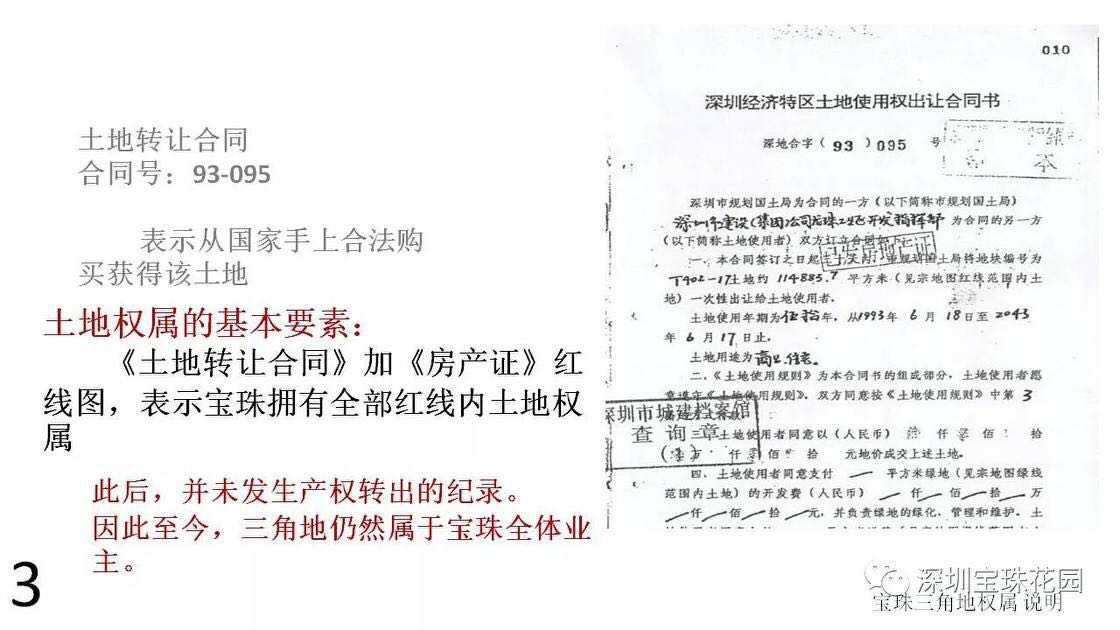 土地转让合同
合同号：93-095
表示从国家手上合法购
买获得该土地
土地权属的基本要素：
《土地转让合同》加《房产证》红
线图，表示宝珠拥有全部红线内土地权
属
此后，并未发生产权转出的纪录。
因此至今，三角地仍然属于宝珠全体业
主。
3
010
深圳经济特区土地使用权出让合同书
深地合字（93）095 号
本
深圳市规划国土局为合同的一方（以下简称市规划国土局）
深圳市建设（集团）公司 工业区开发指挥部 为合同的另一方
（以下简称土地使用者）双方订立合同如下：
已发房地产证
一、本合同签订之日起 天内，市规划国土局将地块编号为
T402-17土地约 114883.7 平方米（见宗地图红线范围内土
地）一次性出让给土地使用者。
土地使用年期为伍拾年，从1993年 6 月 18日至 2043
年 6 月 17日止。
土地用途为商业、住宅。
二、《土地使用规则》为本合同书的组成部分，土地使用者愿
意遵守《土地使用规则》。双方同意按《土地使用规则》中第 3
深圳市城建档案馆
查询章
三、土地使用者同意以（人民币） 仟 佰 拾
万 仟 佰 拾 元地价成交上述土地。
四、土地使用者同意支付 — 平方米绿地（见宗地图绿线
范围内土地）的开发费（人民币） 仟 佰 拾 万
仟 佰 拾 元，并负责绿地的绿化、管理和维护。土
深圳宝珠花园
宝珠三角地权属 说明